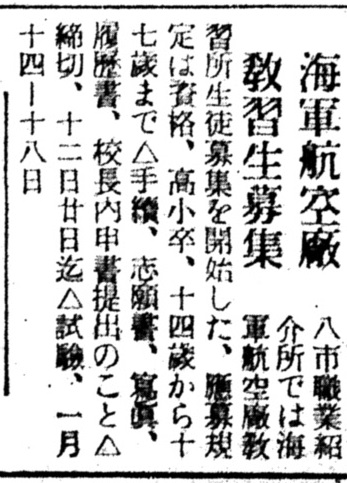 海軍航空廠
教習生募集
八市職業紹
介所では海
軍航空廠教
習所生徒募集を開始した、應募規
定は資格、高小卒、十四歲から十
七歲まで△手續、志願書、寫眞、
履歷書、校長內申書提出のこと△
締切、十二日廿日迄△試驗、一月
十四ー十八日